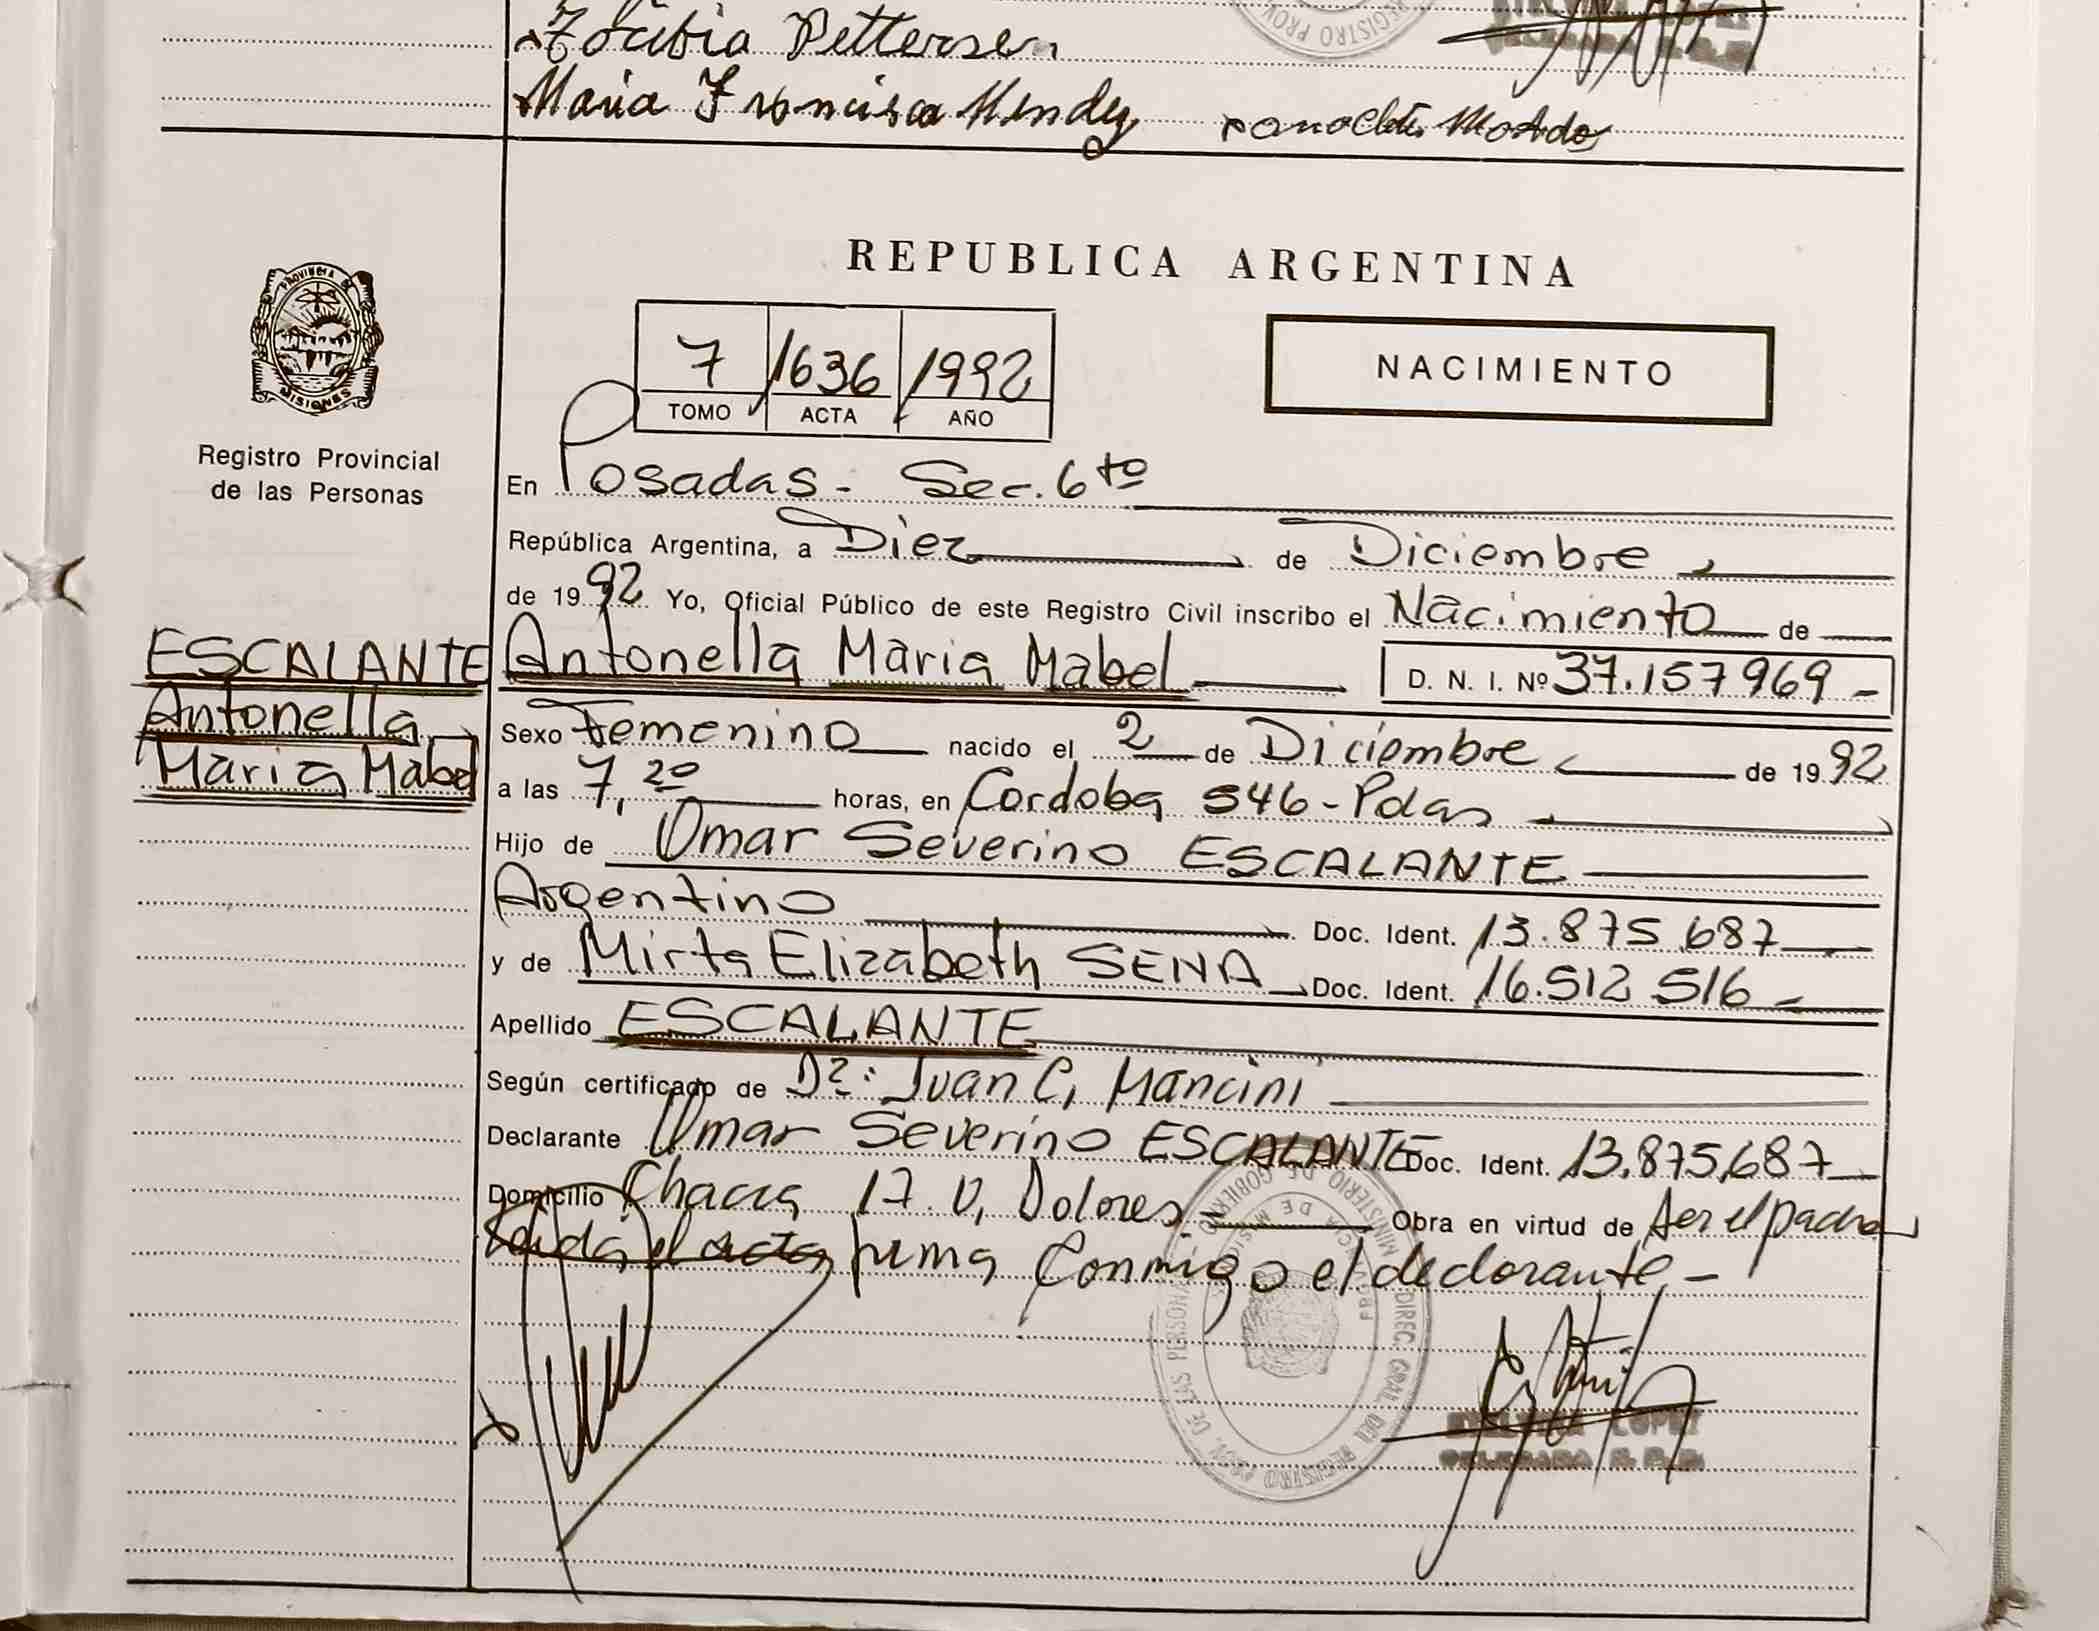 Pettersen
Maria Francisca Mendez
REGISTRO PROV
REPUBLICA ARGENTINA
PROVINCIA DE
MISIONES
Registro Provincial
de las Personas
7 1636 1992
TOMO ACTA AÑO
NACIMIENTO
En Posadas - Sec. 6to
República Argentina, a Diez de Diciembre
de 1992 Yo, Oficial Público de este Registro Civil inscribo el Nacimiento de
ESCALANTE
Antonella
Maria Mabel
Antonella Maria Mabel D. N. I. Nº 37.157969 -
Sexo Femenino nacido el 2 de Diciembre de 1992
a las 7,20 horas, en Cordoba 546 - Pdas
Hijo de Omar Severino ESCALANTE
Argentino Doc. Ident. 13.875.687
y de Mirta Elizabeth SENA Doc. Ident. 16.512 516 -
Apellido ESCALANTE
Según certificado de Dr: Juan C, Mancini
Declarante Omar Severino ESCALANTE Doc. Ident. 13.875,687
Domicilio Chacra 17. V, Dolores Obra en virtud de ser el padre
Leida el acta firma conmigo el declarante -
MINISTERIO DE GOBIERNO
DIREC. GRAL. DEL REGISTRO PROV. DE LAS PERSONAS
LOPEZ